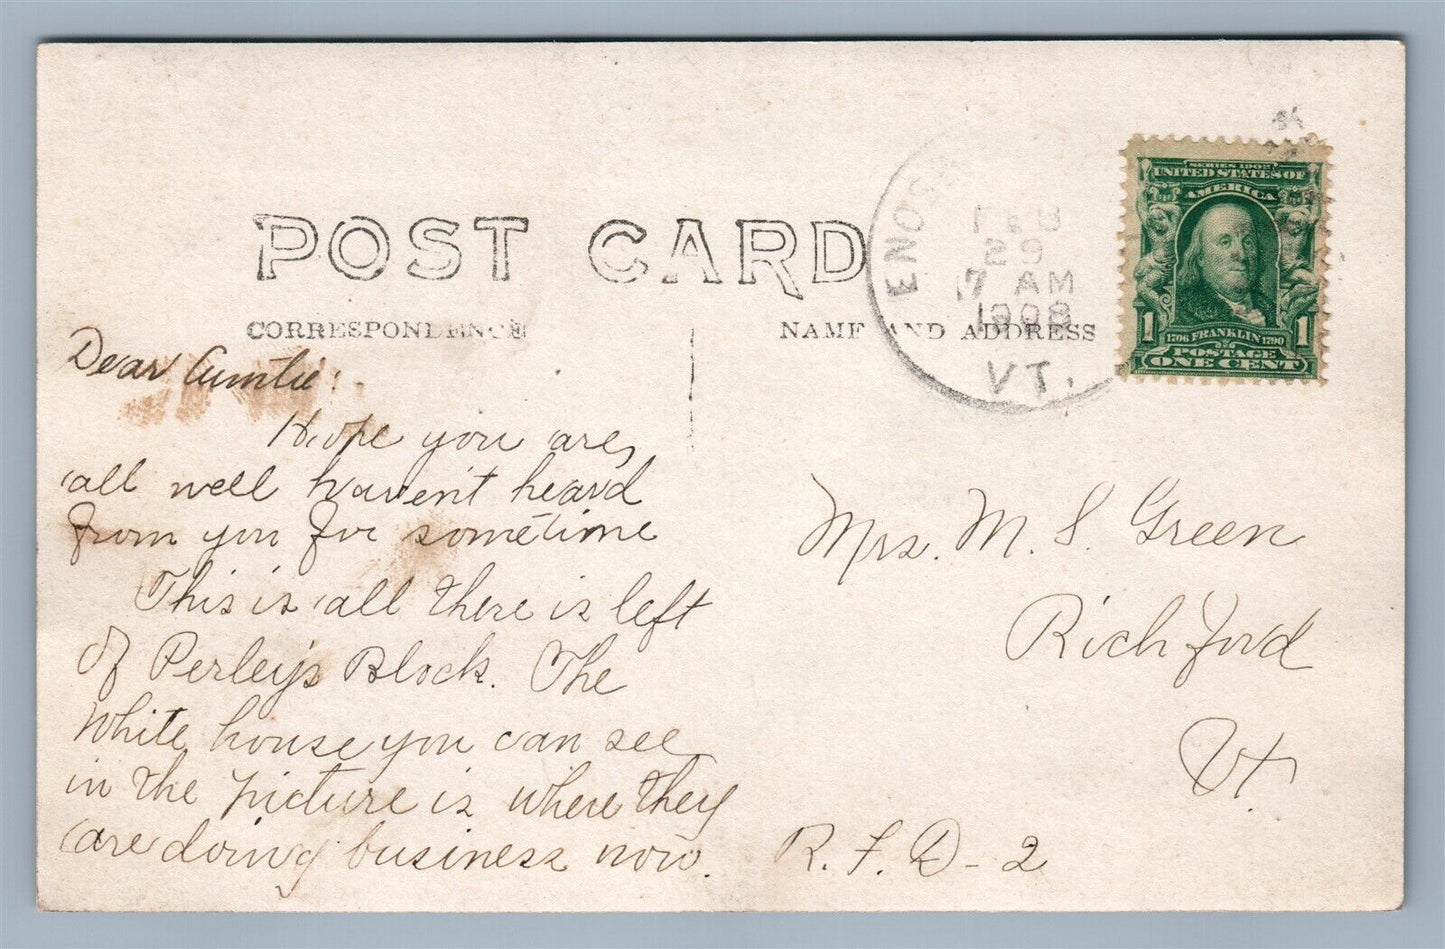 POST CARD
CORRESPONDENCE
NAME AND ADDRESS
ENOS
FEB
29
7 AM
1908
VT.
SERIES 1902
UNITED STATES OF
AMERICA
1 1706 FRANKLIN 1790 1
POSTAGE
ONE CENT
Dear Auntie:
Hope you are,
all well haven't heard
from you for sometime
This is all there is left
of Perley's Block. The
White house you can see
in the picture is where they
are doing business now.
Mrs. M. S. Green
Richford
Vt.
R. F. D - 2